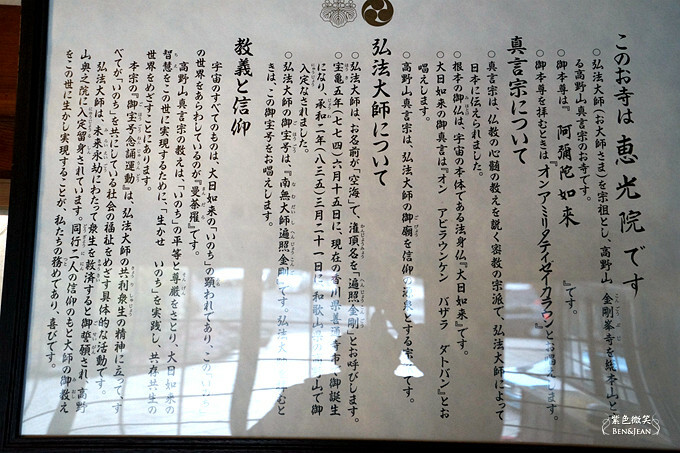 このお寺は 恵光院です
○弘法大師（お大師さま）を宗祖とし、高野山 金剛峯寺を総本山と
る高野山真言宗のお寺です。
○御本尊は『 阿彌陀如来 』です。
○御本尊を拝むときは『オンアミリタテイセイカラウン』とお唱えします。
真言宗について
○真言宗は、仏教の心髄の教えを説く密教の宗派で、弘法大師によって
日本に伝えられました。
○根本の御仏は、宇宙の本体である法身仏『大日如来』です。
○大日如来の御真言は『オン アビラウンケン バザラ ダトバン』とお
唱えします。
○高野山真言宗は、弘法大師の御廟を信仰の とする宗 です。
弘法大師について
○弘法大師は、お名前が「空海」で、灌頂名を「遍照金剛」とお呼びします。
○宝亀五年（七七四）六月十五日に、現在の香川県善通寺市 御誕生
になり、承和二年（八三五）三月二十一日に和歌山 山で御
入定なされました。
○弘法大師の御宝号は、『南無大師遍照金剛』です。弘法大 むと
きは、この御宝号をお唱えします。
教義と信仰
宇宙のすべてのものは、大日如来の「いのち」の顕われであり、この
の世界をあらわしているのが『曼荼羅』です。
高野山真言宗の教えは、「いのち」の平等と尊厳をさとり、大日如来の
智慧をこの世に実現するために、「生かせ いのち」を実践し、共存共生の
世界をめざすことにあります。
本宗の『御宝号念誦運動』は、弘法大師の共利衆生の精神に立って、す
べてが「いのち」を共にしている社会の福祉をめざす具体的な活動です。
弘法大師は、未来永劫にわたって衆生を救済すると御誓願され、高野
山奥之院に入定留身されています。同行二人の信仰のもと大師の御教え
をこの世に生かし実現することが、私たちの務めであり、喜びです。
紫色微笑
BEN&JEAN